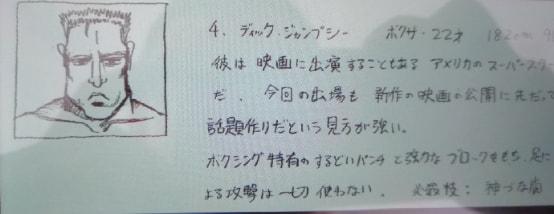 4. ディック・ジャンプシー ボクサ・22才 182cm 9
彼は映画に出演することもあるアメリカのスーパースター
だ. 今回の出場も 新作の映画の公開に先だって
話題作りだという見方が強い.
ボクシング特有のするどいパンチと強力なブロークをもち, 足に
よる攻撃は一切使わない. 必殺技: